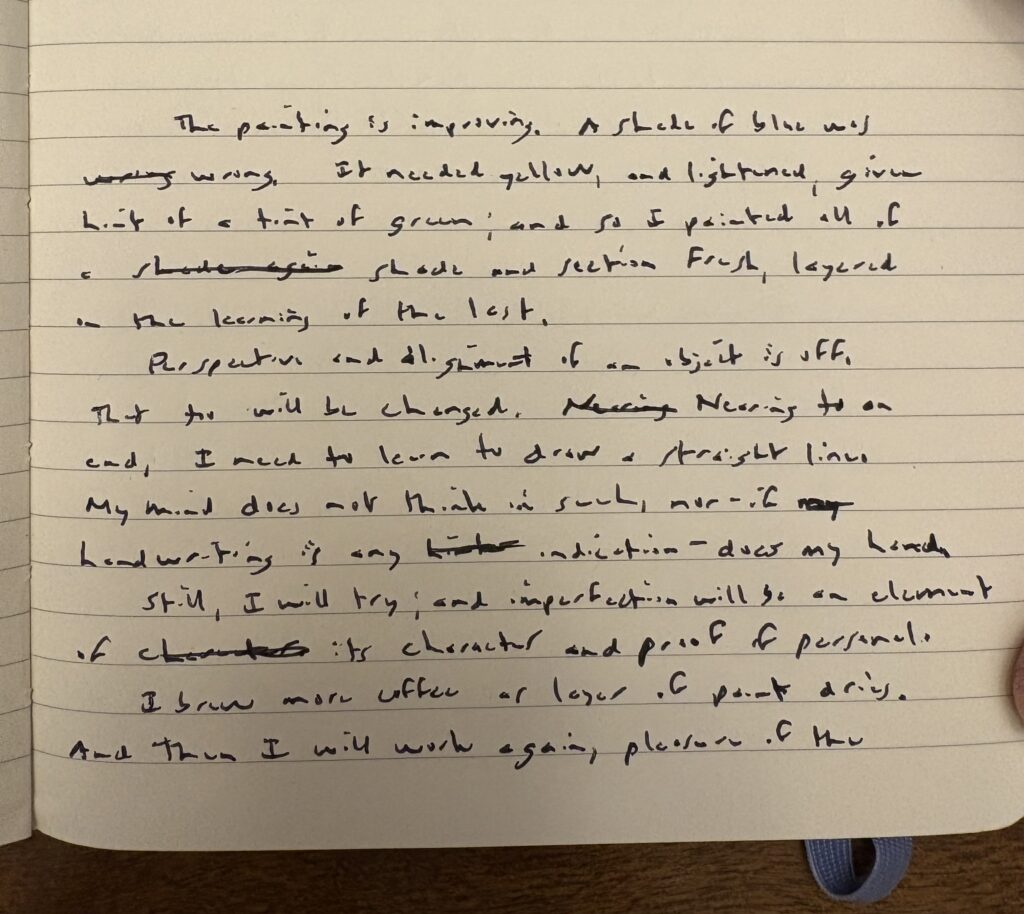 The painting is improving. A shade of blue was
wrong wrong. It needed yellow, and lightened, given
hint of a tint of green; and so I painted all of
a shade again shade and section fresh, layered
on the learning of the last.
Perspective and alignment of an object is off.
That too will be changed. Nearing Nearing to an
end, I need to learn to draw a straight line.
My mind does not think in such, nor - if my
handwriting is any indication - does my hand.
Still, I will try; and imperfection will be an element
of character its character and proof of personal.
I brew more coffee as layer of paint dries.
And then I will work again, pleasure of the